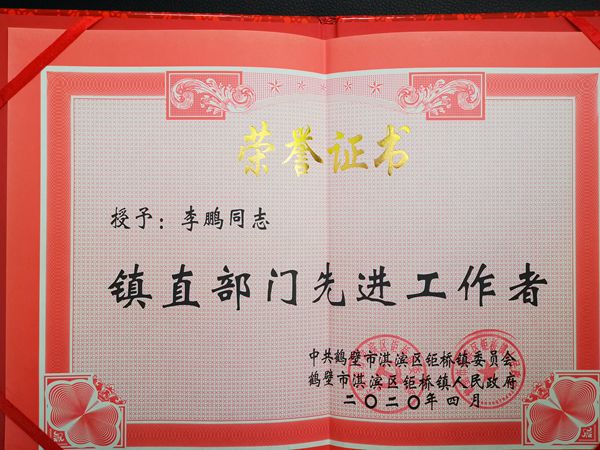 荣誉证书
授予：李鹏同志
镇直部门先进工作者
中共鹤壁市淇滨区钜桥镇委员会
鹤壁市淇滨区钜桥镇人民政府
二〇二〇年四月